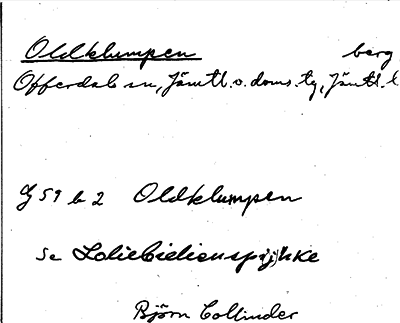 Oldklumpen berg
Offerdals sn, Jämtl. v. doms. tg, Jämtl. l
G 59 b 2 Oldklumpen
Se
Björn Collinder